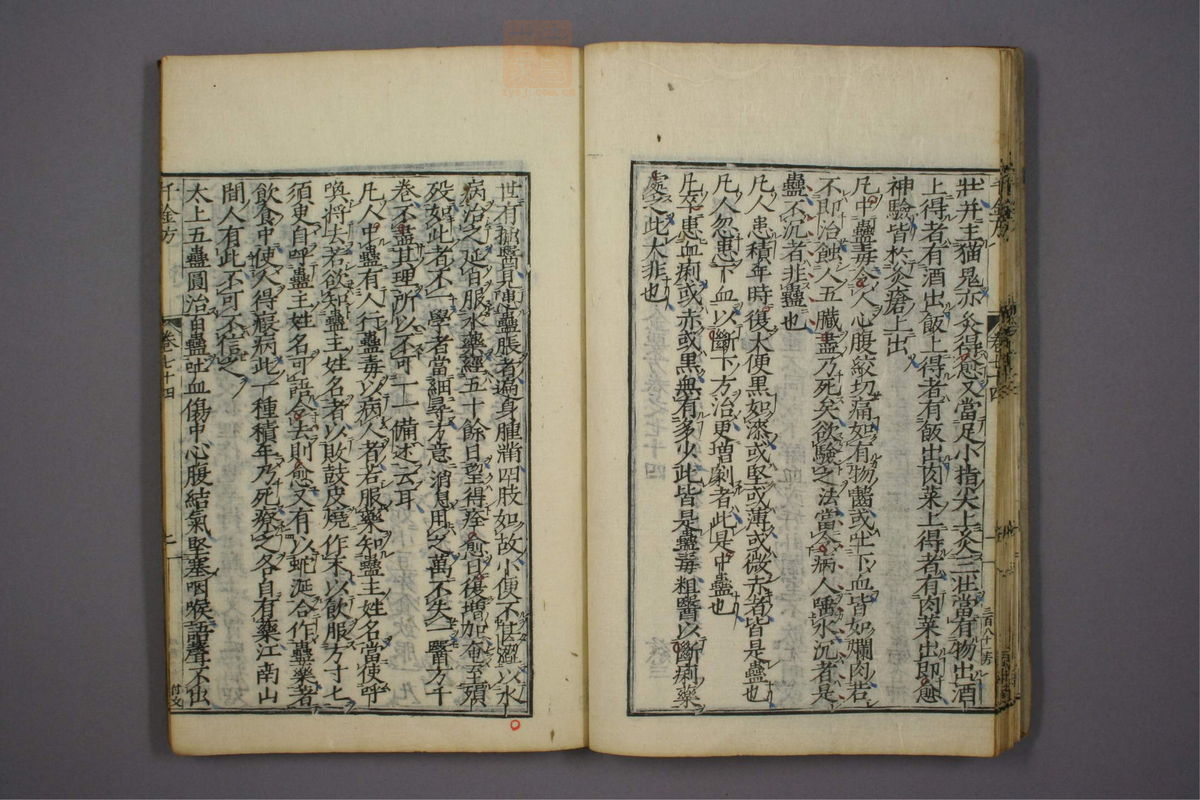 壯并主猫鬼亦灸得愈又當足小指尖上灸三壯當有物出酒
上得者有酒出飯上得者有飯出肉菜上得者有肉菜出即愈
神驗皆於灸瘡上出
凡中蠱毒令人心腹絞切痛如有物齧或吐下血皆如爛肉若
不即治蝕人五臟盡乃死矣欲驗之法當令病人唾水沉者是
蠱不沉者非蠱也
凡人患積年時復大便黑如漆或堅或薄或微赤者皆是蠱也
凡人忽患下血以斷下方治更増劇者此是中蠱也
凡卒患血痢或赤或黑無有多少此皆是蠱毒粗醫以斷痢藥
處之此大非也
世有拙醫見患蠱脹者遍身腫滿四肢如故小便不甚澀以水
病治之延日服水藥經五十餘日望得痊愈日復増加奄至殞
歿如此者不一學者當細尋方意消息用之萬不失一醫方千
卷不盡其理所以不可一一備述云耳
凡人中蠱有人行蠱毒以病人者若服藥知蠱主姓名當使呼
喚將去若欲知蠱主姓名者以敗鼓皮燒作末以飲服方寸匕
須臾自呼蠱主姓名可語令去則愈又有以蛇涎合作蠱藥者
飲食中使人得瘕病此一種積年乃死療之各自有藥江南山
間人有此不可不信之
太上五蠱圓治百蠱吐血傷中心腹結氣堅塞咽喉語聲不出
千金方
卷七十四
二